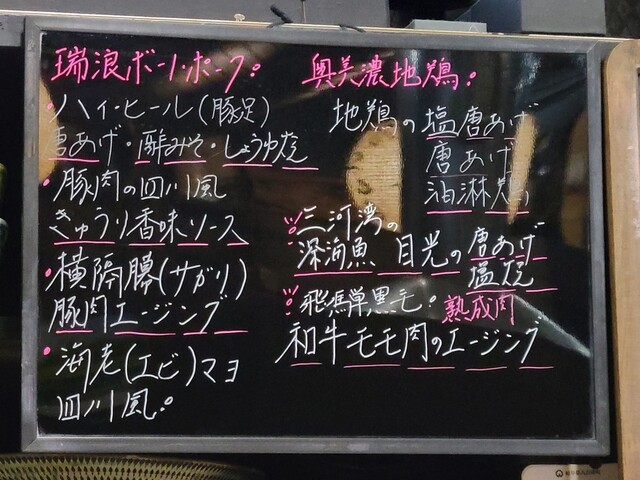 瑞浪ボーノポーク。
・ハイ・ヒール(豚足)
唐あげ・酢みそ・しょうゆ焼
・豚肉の四川風
きゅうり香味ソース
・横隔膜(サガリ)
豚肉エージング
・海老(エビ)マヨ
四川風。
奥美濃地鶏。
地鶏の塩唐あげ
唐あげ
油淋鶏
三河湾の
深海魚 目光の唐あげ
塩焼
飛騨黒毛。熟成肉
和牛モモ肉のエージング